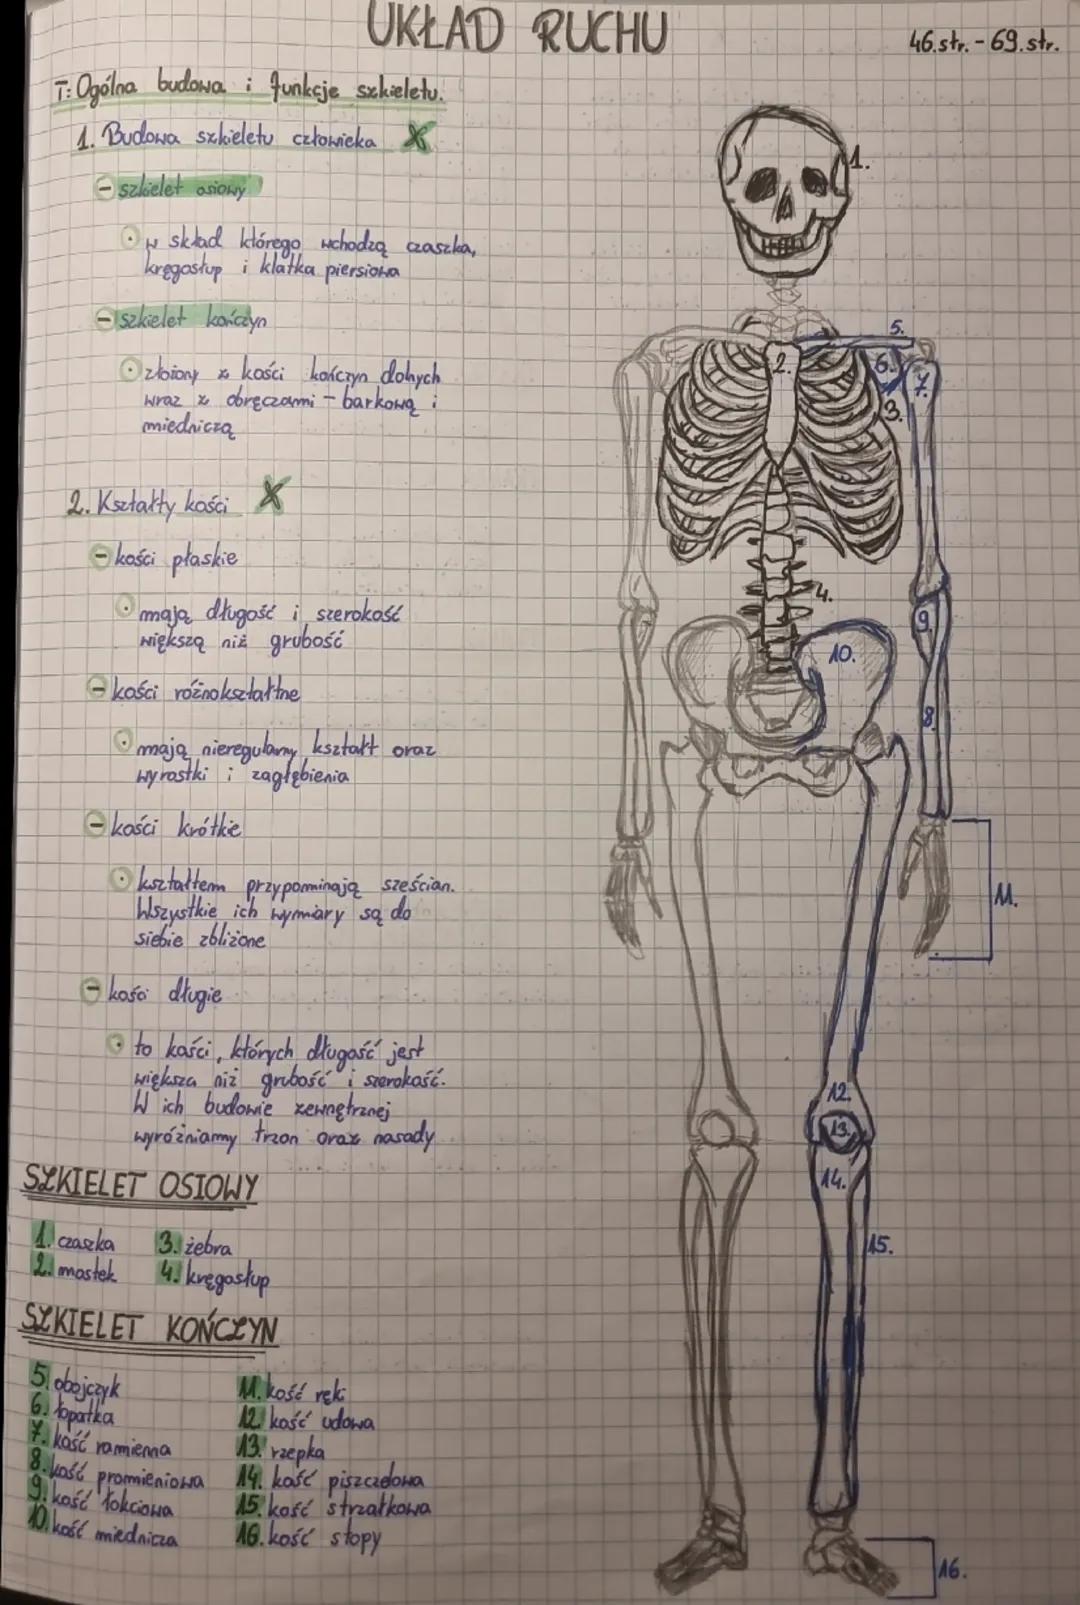 UKŁAD RUCHU
46.str. - 69.str.
T: Ogólna budowa i funkcje szkieletu.
1. Budowa szkieletu człowieka
- szkielet osiowy
w skład którego wchodzą czaszka,
kręgosłup i klatka piersiowa
- szkielet kończyn
złożony z kości kończyn dolnych
wraz z obręczami - barkową i
miedniczą
2. Kształty kości
- kości płaskie
mają długość i szerokość
większą niż grubość
- kości różnokształtne
mają nieregularny kształt oraz
wyrostki i zagłębienia
- kości krótkie
kształtem przypominają sześcian.
Wszystkie ich wymiary są do
siebie zbliżone
- kości długie
to kości, których długość jest
większa niż grubość i szerokość.
W ich budowie zewnętrznej
wyróżniamy trzon oraz nasady
SZKIELET OSIOWY
1. czaszka
2. mostek
3. żebra
4. kręgosłup
SZKIELET KOŃCZYN
5. obojczyk
6. łopatka
7. kość ramienna
8. kość promieniowa
9. kość łokciowa
10. kość miednicza
11. kość ręki
12. kość udowa
13. rzepka
14. kość piszczelowa
15. kość strzałkowa
16. kość stopy
1.
5.
2.
6.
7.
3.
4.
9.
10.
8.
11.
12.
13.
14.
15.
16.